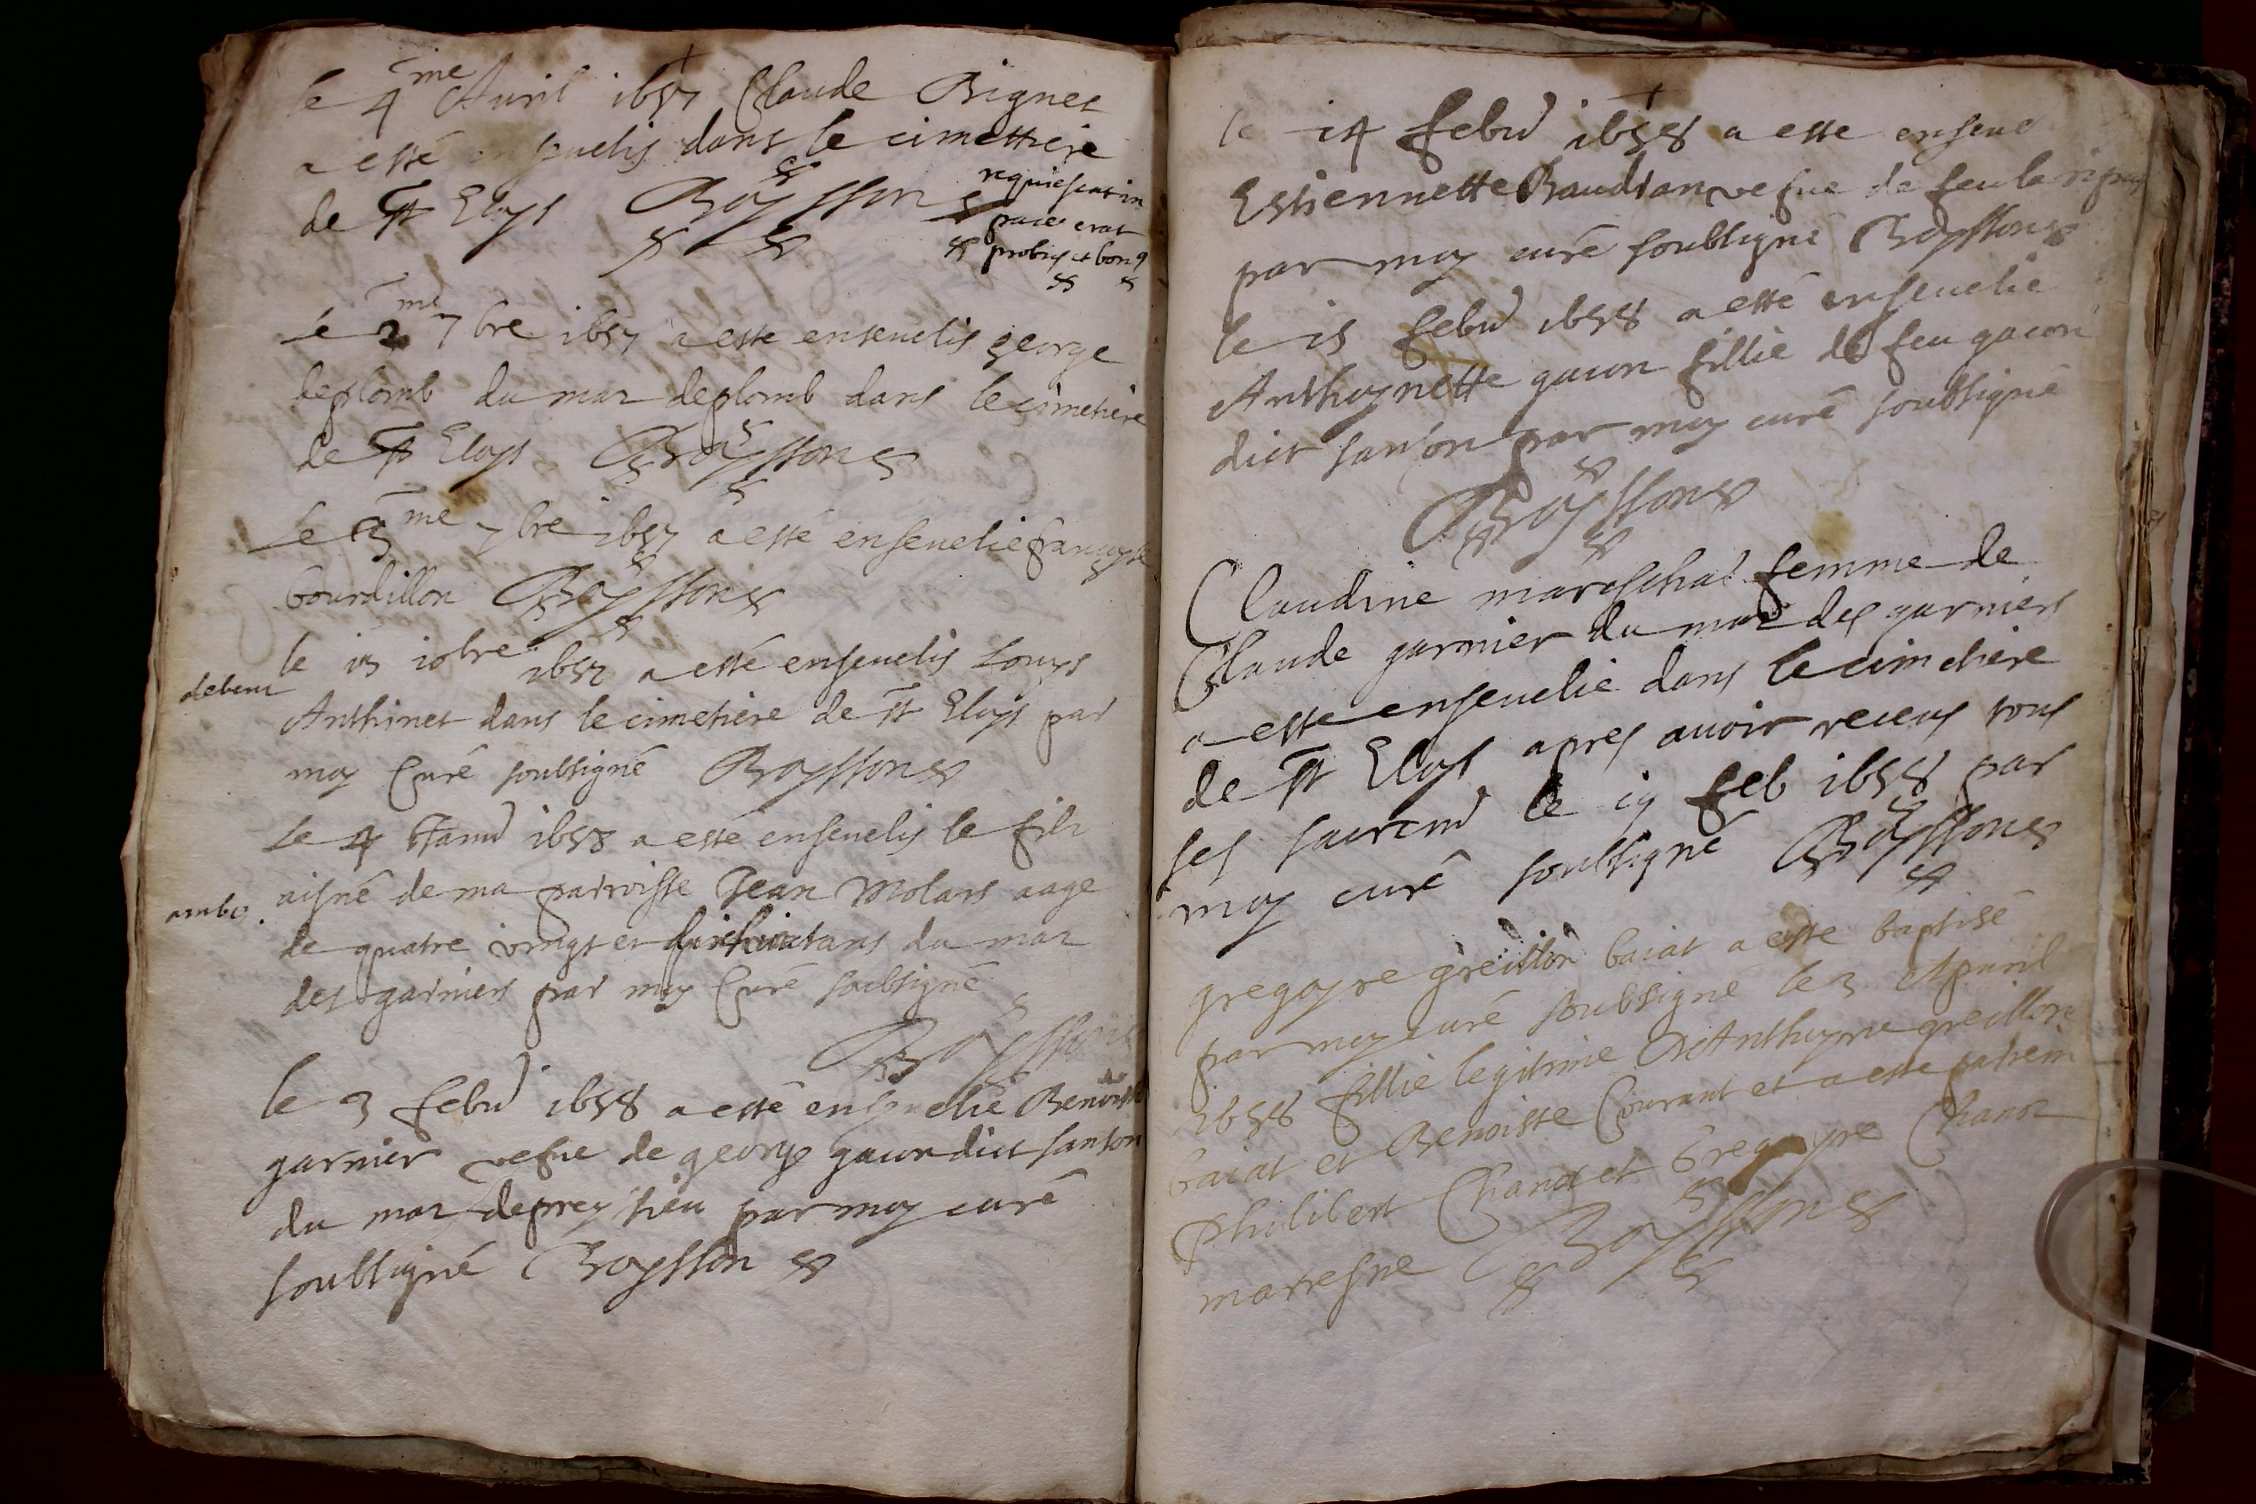 le 4me Avril 1657 Claude Bignet
a esté ensevelis dans le cimettiere
de St Eloys Boysson
requiescat in
pace erat
probus et bonq
Le 2me 7bre 1657 a este ensevelis george
deplomb du mas deplomb dans le cimetiere
de St Eloys Boysson
Le 3me 7bre 1657 a esté ensevelie françoyse
bourdillon Boysson
le 10bre 1657 a esté ensevelis Louys
debent
Anthinet dans le cimetiere de St Eloys par
moy Curé soubsigné Boysson
Le 4 Janv 1658 a esté ensevelis le filz
aisné de ma parroisse Jean Molars aage
ambo.
de quatre vingt et ans du mas
des garniers par moy Curé soubsigné
Boysson
le 3 febv 1658 a esté ensevelie Benoiste
garnier vefue de george gacon dict sanson
du mas deprey sieu par moy curé
soubsigné Boysson
le 14 febv 1658 a este enseve
Estiennette Baudran vefue de feu
par moy curé soubsigné Boysson
le 15 febv 1658 a esté ensevelie
Anthoynette gacon fillie de feu gacon
dict sanson par moy curé soubsigné
Boysson
Claudine mareschal femme de
Claude garnier du mas des garniers
a este ensevelie dans le cimetiere
de St Eloys apres avoir receus tous
ses sacrem le feb 1658 par
moy curé soubsigné Boysson
gregoyre greillon baiat a este baptisé
par moy curé soubsigné le 3 Apvril
1658 fillie legitime D'Anthoyne greillon
baiat et Benoiste Courant et a este parrein
philibert Chanal et Gregoyre Chanal
marresne Boysson